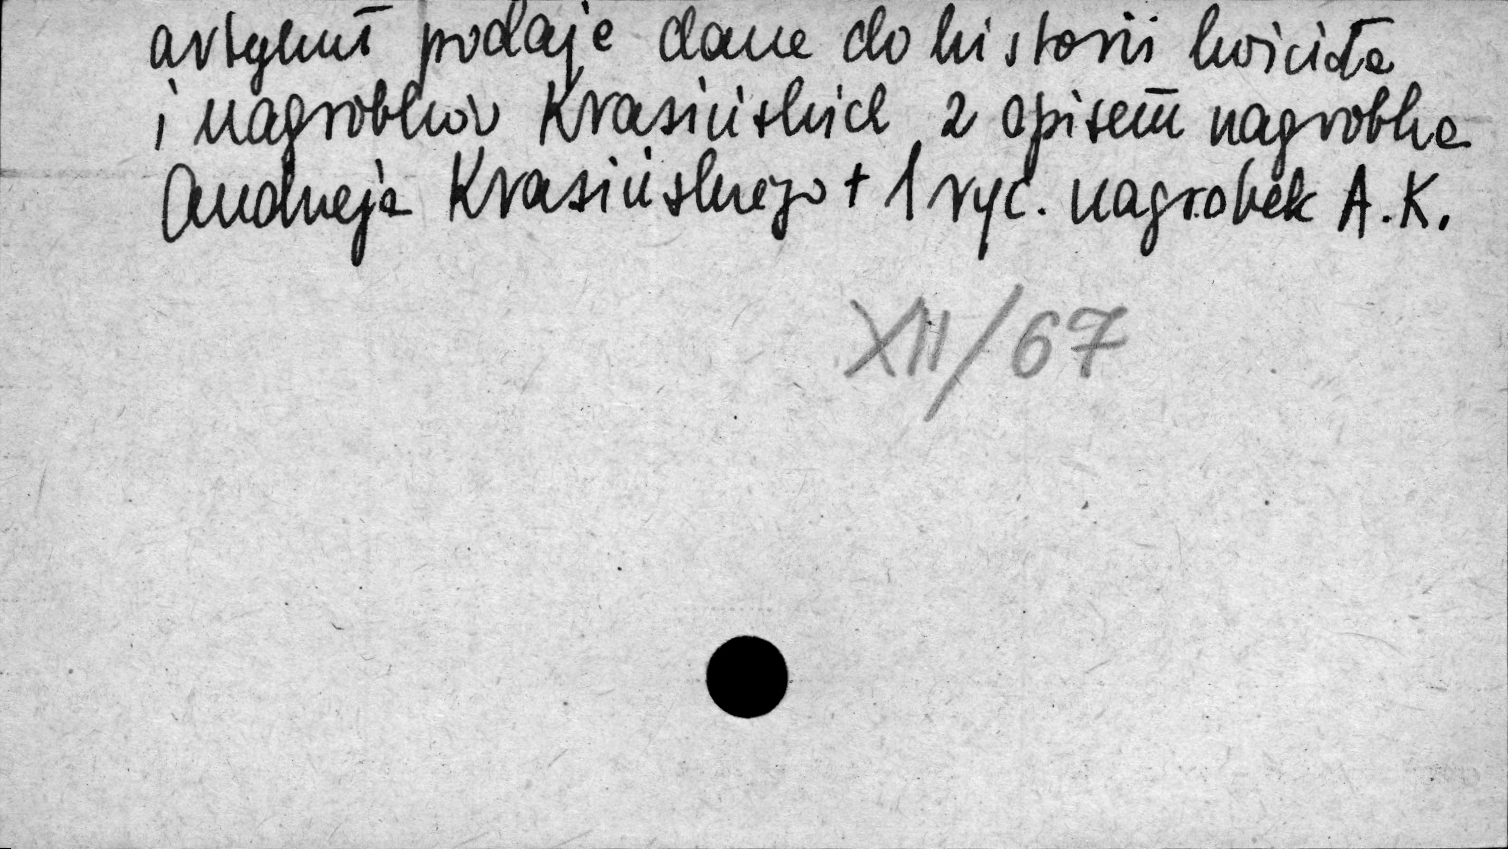 artykuł podaje dane do historii kościoła
i nagrobków Krasińskich z opisem nagrobka
Andrzeja Krasińskiego + 1 ryc. nagrobek A.K.
XII/67